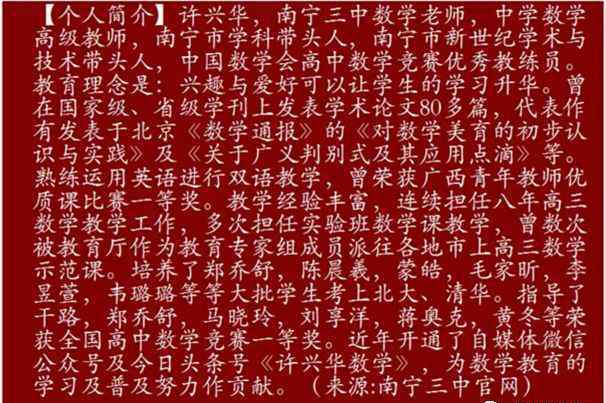 【个人简介】许兴华，南宁三中数学老师，中学数学
高级教师，南宁市学科带头人，南宁市新世纪学术与
技术带头人，中国数学会高中数学竞赛优秀教练员。
教育理念是：兴趣与爱好可以让学生的学习升华。曾
在国家级、省级学刊上发表学术论文80多篇，代表作
有发表于北京《数学通报》的《对数学美育的初步认
识与实践》及《关于广义判别式及其应用点滴》等。
熟练运用英语进行双语教学，曾荣获广西青年教师优
质课比赛一等奖。教学经验丰富，连续担任八年高三
数学教学工作，多次担任实验班数学课教学，曾数次
被教育厅作为教育专家组成员派往各地市上高三数学
示范课。培养了郑乔舒，陈晨羲，蒙皓，毛家昕，李
昱萱，韦璐璐等等大批学生考上北大、清华。指导了
干路，郑乔舒，马晓玲，刘享洋，蒋奥克，黄冬等荣
获全国高中数学竞赛一等奖。近年开通了自媒体微信
公众号及今日头条号《许兴华数学》，为数学教育的
学习及普及努力作贡献。（来源:南宁三中官网）